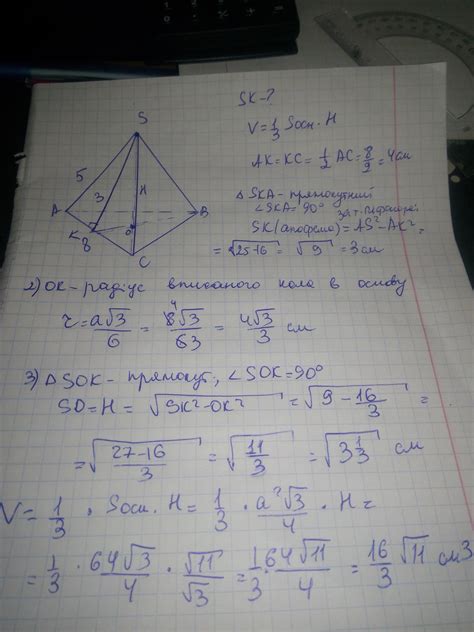 SK-?
V=1/3 Sосн·H
AK=KC=1/2 AC=8/2=4см
△SKA-прямокутний
∠SKA=90°
за т. Піфагора
SK(апофема)=AS²-AK²=
=√25-16=√9=3см
S
5
3
H
A
K
8
O
B
C
2) OK-радіус вписаного кола в основу
r=a√3/6=8√3/63=4√3/3 см
3) △SOK-прямокут, ∠SOK=90°
SO=H=√SK²-OK²=√9-16/3=
=√27-16/3=√11/3=√3 2/3 см
V=1/3·Sосн·H=1/3·a²√3/4·H=
=1/3·64√3/4·√11/√3=1/3·64√11/4=16/3√11 см3